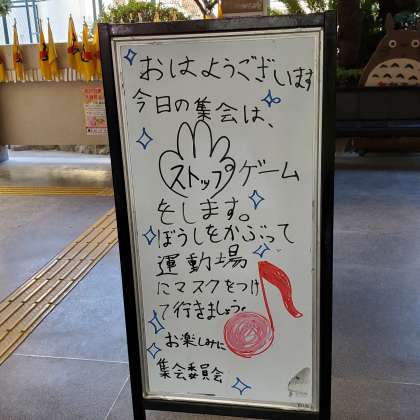 おはようございます
今日の集会は、
ストップゲーム
をします。
ぼうしをかぶって
運動場
にマスクをつけ
て行きましょう。
お楽しみに
集会委員会